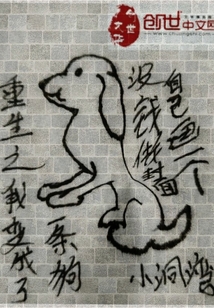 创世中文网
重生之我变成了
一条狗
没钱做封面
自己画一个
小洞